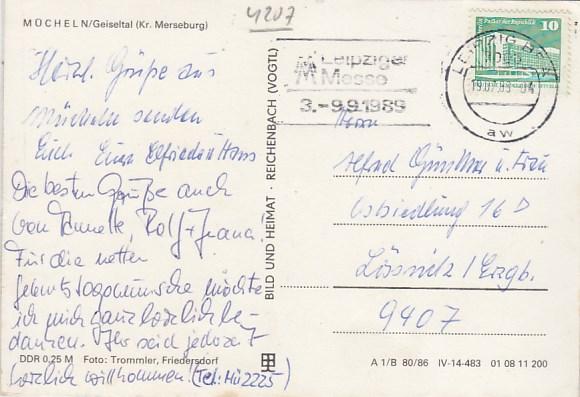 MÜCHELN/Geiseltal (Kr. Merseburg)
4207
Herzl. Grüße aus
Mücheln senden
Euch Eure Elfriede u. Hans
Die besten Grüße auch
von Annette, Rolf + Juana!
Für die netten
Geburtstagswünsche möchte
ich mich ganz herzlich be-
danken. Ihr seid jederzeit
herzlich willkommen! (Tel: Mü 2225)
DDR 0,25 M Foto: Trommler, Friedersdorf
BILD UND HEIMAT · REICHENBACH (VOGTL)
Leipziger
Messe
3.-9.9.1989
LEIPZIG
aw
Palast der Republik
10
Herrn
Alfred Günther u. Frau
Ostsiedlung 16 D
Lössnitz / Erzgb.
9407
A 1/B 80/86 IV-14-483 01 08 11 200